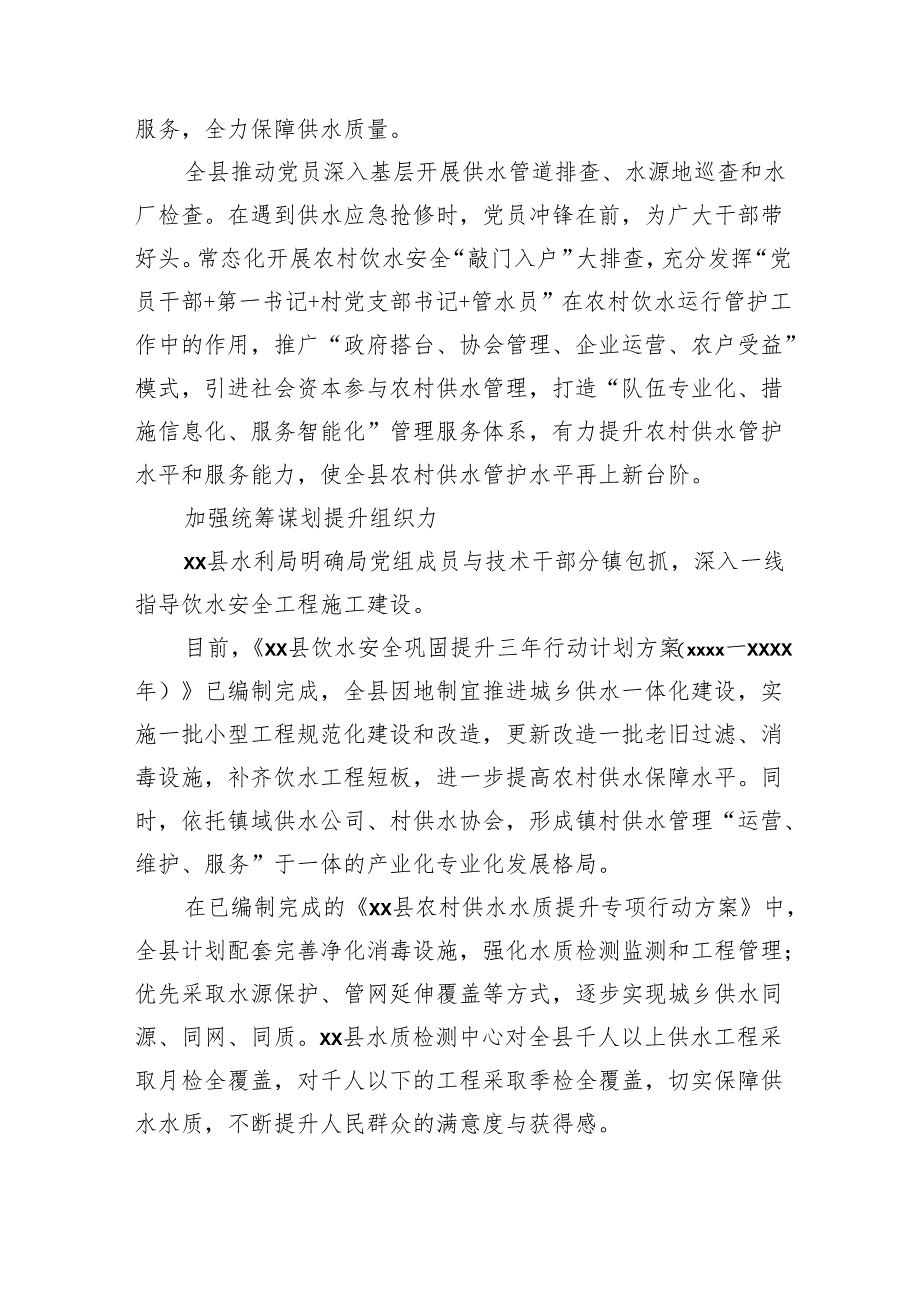 服务，全力保障供水质量。
全县推动党员深入基层开展供水管道排查、水源地巡查和水
厂检查。在遇到供水应急抢修时，党员冲锋在前，为广大干部带
好头。常态化开展农村饮水安全“敲门入户”大排查，充分发挥“党
员干部+第一书记+村党支部书记+管水员”在农村饮水运行管护工
作中的作用，推广“政府搭台、协会管理、企业运营、农户受益”
模式，引进社会资本参与农村供水管理，打造“队伍专业化、措
施信息化、服务智能化”管理服务体系，有力提升农村供水管护
水平和服务能力，使全县农村供水管护水平再上新台阶。
加强统筹谋划提升组织力
xx县水利局明确局党组成员与技术干部分镇包抓，深入一线
指导饮水安全工程施工建设。
目前，《xx县饮水安全巩固提升三年行动计划方案（xxxx一xxxx
年）》已编制完成，全县因地制宜推进城乡供水一体化建设，实
施一批小型工程规范化建设和改造，更新改造一批老旧过滤、消
毒设施，补齐饮水工程短板，进一步提高农村供水保障水平。同
时，依托镇域供水公司、村供水协会，形成镇村供水管理“运营、
维护、服务”于一体的产业化专业化发展格局。
在已编制完成的《xx县农村供水水质提升专项行动方案》中，
全县计划配套完善净化消毒设施，强化水质检测监测和工程管理；
优先采取水源保护、管网延伸覆盖等方式，逐步实现城乡供水同
源、同网、同质。xx县水质检测中心对全县千人以上供水工程采
取月检全覆盖，对千人以下的工程采取季检全覆盖，切实保障供
水水质，不断提升人民群众的满意度与获得感。